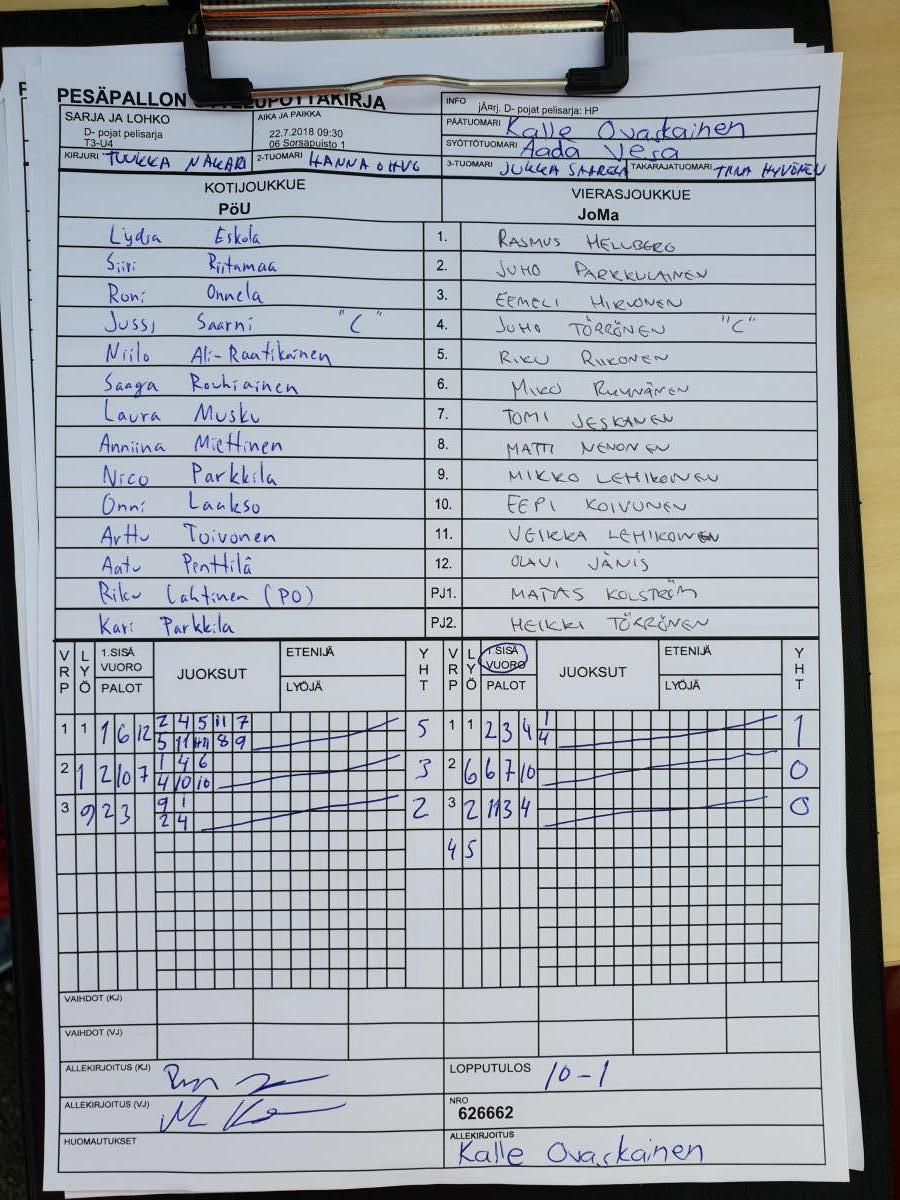 PESÄPALLON OTTELUPÖYTÄKIRJA
SARJA JA LOHKO
D- pojat pelisarja
T3-U4
AIKA JA PAIKKA
22.7.2018 09:30
06 Sorsapuisto 1
INFO
jÄ¤rj. D- pojat pelisarja: HP
PÄÄTUOMARI Kalle Ovaskainen
SYÖTTÖTUOMARI Aada Vesa
KIRJURI TUUKKA NAKARI
2-TUOMARI HANNA
3-TUOMARI JUKKA
TAKARAJATUOMARI TIINA HYVÖNEN
KOTIJOUKKUE
PöU
VIERASJOUKKUE
JoMa
Lydia Eskola 1. RASMUS HELLBERG
Siiri Riitamaa 2. JUHO PARKKULAINEN
Roni Onnela 3. EEMELI HIRVONEN
Jussi Saarni "C" 4. JUHO TÖRRÖNEN "C"
Niilo Ali-Raatikainen 5. RIKU RIIKONEN
Saaga Rouhiainen 6. MIKO RYYNÄNEN
Laura Musku 7. TOMI JESKANEN
Anniina Miettinen 8. MATTI NENONEN
Nico Parkkila 9. MIKKO LEHIKOINEN
Onni Laakso 10. EEPI KOIVUNEN
Arttu Toivonen 11. VEIKKA LEHIKOINEN
Aatu Penttilä 12. OLAVI JÄNIS
Riku Lahtinen (PO) PJ1. MATIAS KOLSTRÖM
Kari Parkkila PJ2. HEIKKI TÖRRÖNEN
VRP LYÖ 1.SISÄ VUORO PALOT JUOKSUT ETENIJÄ LYÖJÄ YHT VRP LYÖ 1.SISÄ VUORO PALOT JUOKSUT ETENIJÄ LYÖJÄ YHT
1 1 1 6 12 2 4 5 11 7 5 1 1 2 3 4 1 1
5 11 8 9 4
2 1 2 10 7 1 4 6 3 2 6 6 7 10 0
4 10 10
3 9 2 3 9 1 2 3 2 11 3 4 0
2 4
4 5
VAIHDOT (KJ)
VAIHDOT (VJ)
ALLEKIRJOITUS (KJ)
LOPPUTULOS 10-1
ALLEKIRJOITUS (VJ)
NRO
626662
HUOMAUTUKSET
ALLEKIRJOITUS
Kalle Ovaskainen